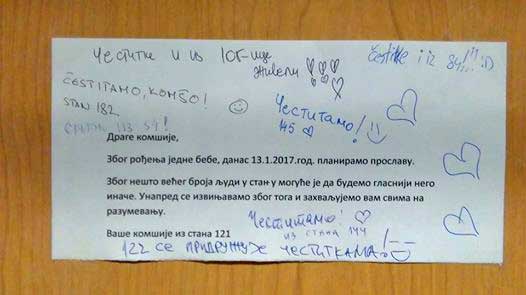 Честитке и из 10Г-ице
живели
čestitke i iz 84!!! :D
ČESTITAMO, KOMŠO!
STAN 182
Честитамо!
145
Драге комшије,
Због рођења једне бебе, данас 13.1.2017.год. планирамо прославу.
Због нешто већег броја људи у стан у могуће је да будемо гласнији него
иначе. Унапред се извињавамо због тога и захваљујемо вам свима на
разумевању.
Честитамо!
из стана 144
Ваше комшије из стана 121
122 СЕ ПРИДРУЖУЈЕ ЧЕСТИТКАМА!